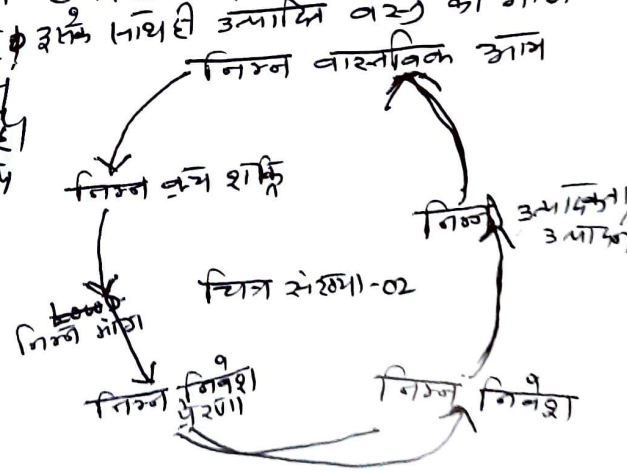 इसके साथ ही उत्पादित वस्तु की
निम्न वास्तविक आय
निम्न क्रय शक्ति
निम्न उत्पादकता/
उत्पादन
चित्र संख्या-02
निम्न मांग
निम्न निवेश
प्रेरणा
निम्न निवेश